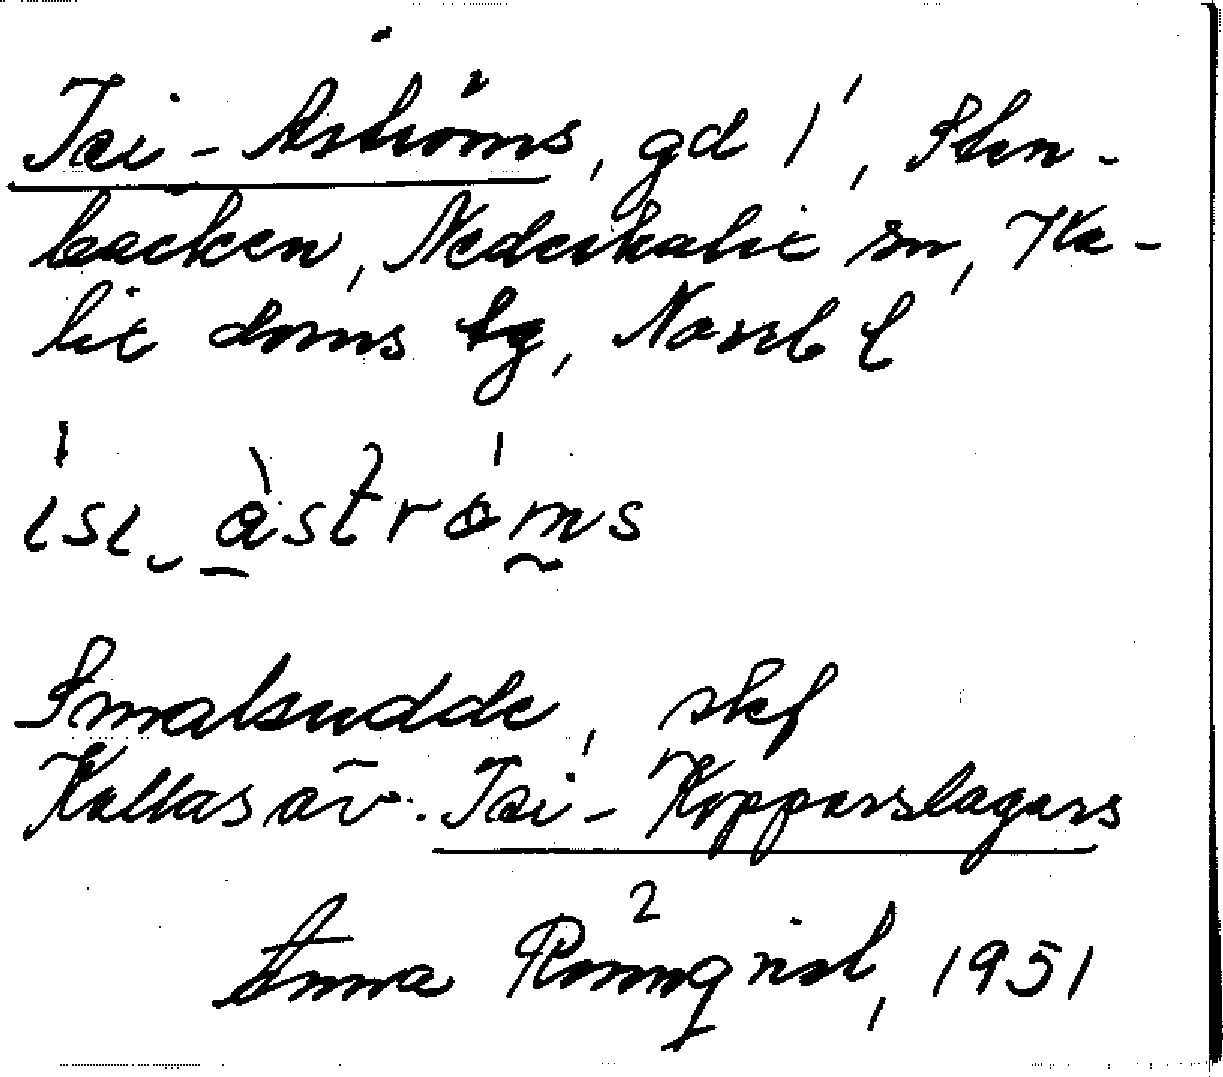 Isi-Åströms, gd 1, Sten-
backen, Nederkalix sn, Ka-
lix doms tg, Norrb l
ɩsɩ‿àströ́ms
Smalsudde, skf
Kallas äv. Isi-Kopparslagars
Anna Rönnqvist, 1951